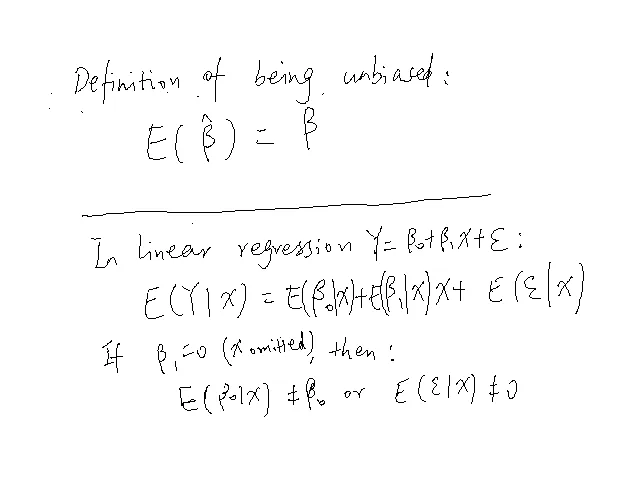 Definition of being unbiased:
E(β̂) = β
In linear regression Y = β₀+β₁X+ε:
E(Y|X) = E(β₀|X)+E(β₁|X)X+ E(ε|X)
If β₁=0 (X omitted), then:
E(β₀|X) ≠ β₀ or E(ε|X) ≠ 0